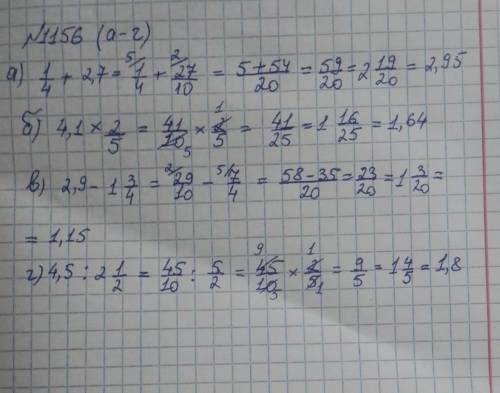 №1156 (а-г)
а) 1/4 + 2,7 = ⁵1/4 + ²27/10 = 5+54/20 = 59/20 = 2 19/20 = 2,95
б) 4,1 × 2/5 = 41/10 5 × 2 1/5 = 41/25 = 1 16/25 = 1,64
в) 2,9 - 1 3/4 = ²29/10 - ⁵7/4 = 58-35/20 = 23/20 = 1 3/20 =
= 1,15
г) 4,5 : 2 1/2 = 45/10 : 5/2 = 45 9/10 5 × 2 1/5 1 = 9/5 = 1 4/5 = 1,8